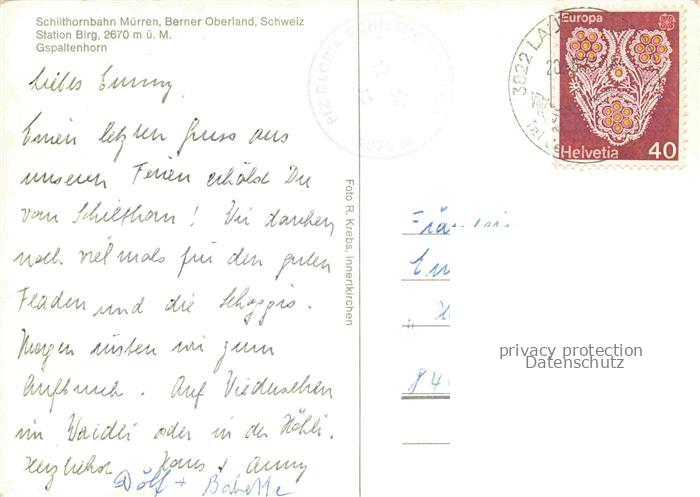 Schilthornbahn Mürren, Berner Oberland, Schweiz
Station Birg, 2670 m ü. M.
Gspaltenhorn
Liebes Emmy,
Einen letzten Gruss aus
unseren Ferien erhälst Du
vom Schilthorn! Wir danken
noch vielmals für den guten
Fladen und die Schoggis.
Morgen rüsten wir zum
Aufbruch. Auf Wiedersehen
im Waidli oder in der Höhli.
Herzlichst Hans + Anny
Dölf + Babette
Foto R. Krebs, Innertkirchen
PIZ GLORIA SCHILTHORN
2970 m
3822 LAU
Europa
Helvetia 40
Em
84
privacy protection
Datenschutz